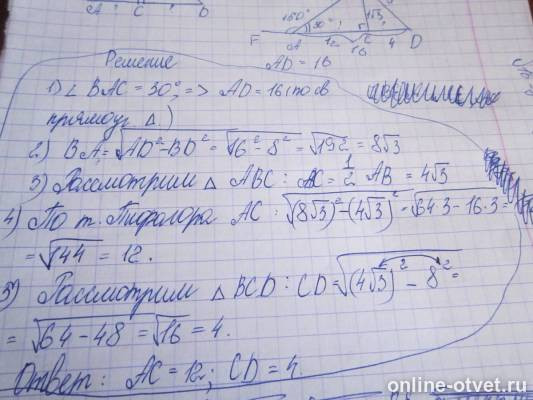 A C D
150° 30° √3
F A 12 C 4 D
16
Решение AD = 16
1) ∠ BAC = 30°, => AD = 16 (по св
прямоуг. Δ.)
2) BA = √AD²-BD² = √16²-8² = √192 = 8√3
3) Рассмотрим Δ ABC : AC = 1/2 AB = 4√3
4) По т. Пифагора AC : √(8√3)²-(4√3)² = √64·3-16·3 =
= √144 = 12.
5) Рассмотрим Δ BCD : CD = √(4√3)² - 8² =
= √64-48 = √16 = 4.
Ответ : AC = 12 ; CD = 4
online-otvet.ru